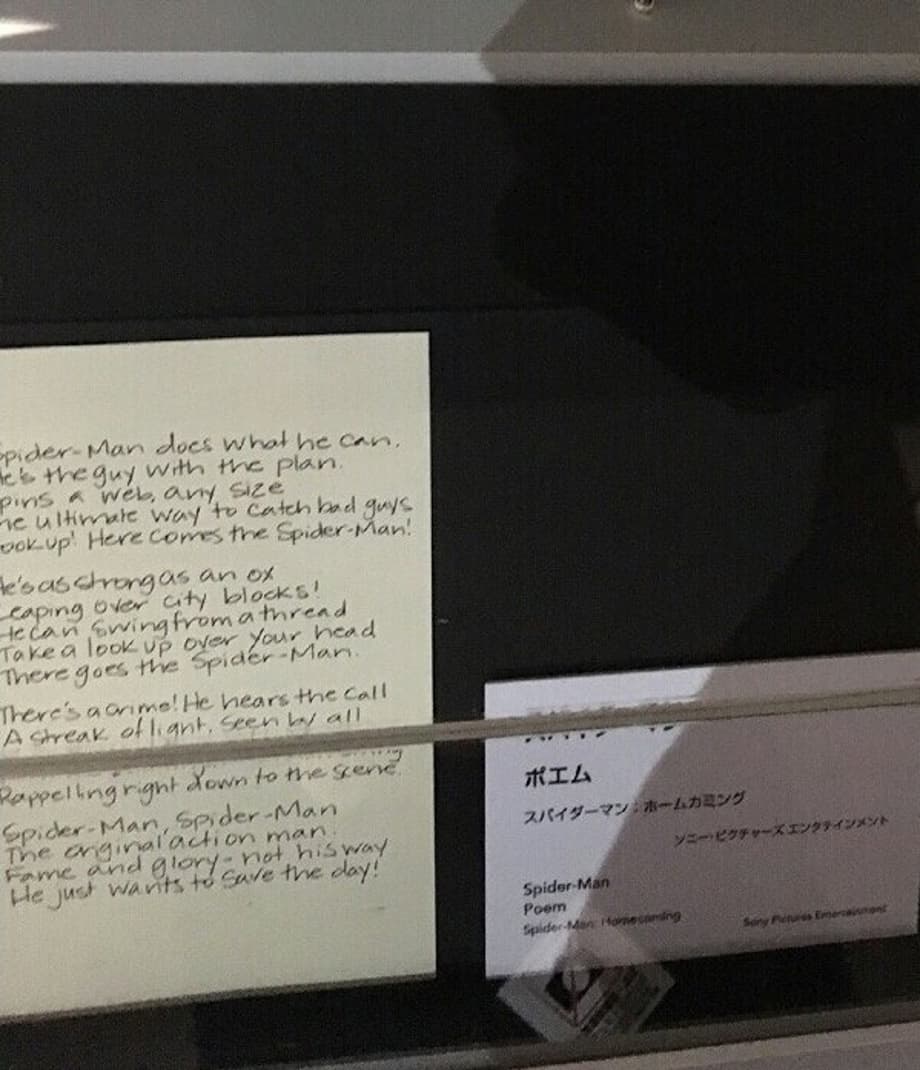 pider-Man does what he can.
He's the guy with the plan.
pins a web, any size
he ultimate way to catch bad guys
ook up! Here comes the Spider-Man!
He's as strong as an ox
Leaping over city blocks!
He can swing from a thread
Take a look up over your head
There goes the Spider-Man.
There's a crime! He hears the call
A streak of light, seen by all
Rappelling right down to the scene.
Spider-Man, Spider-Man
The original action man.
Fame and glory - not his way
He just wants to save the day!
ポエム
スパイダーマン：ホームカミング
ソニー・ピクチャーズ エンタテインメント
Spider-Man
Poem
Spider-Man: Homecoming
Sony Pictures Entertainment